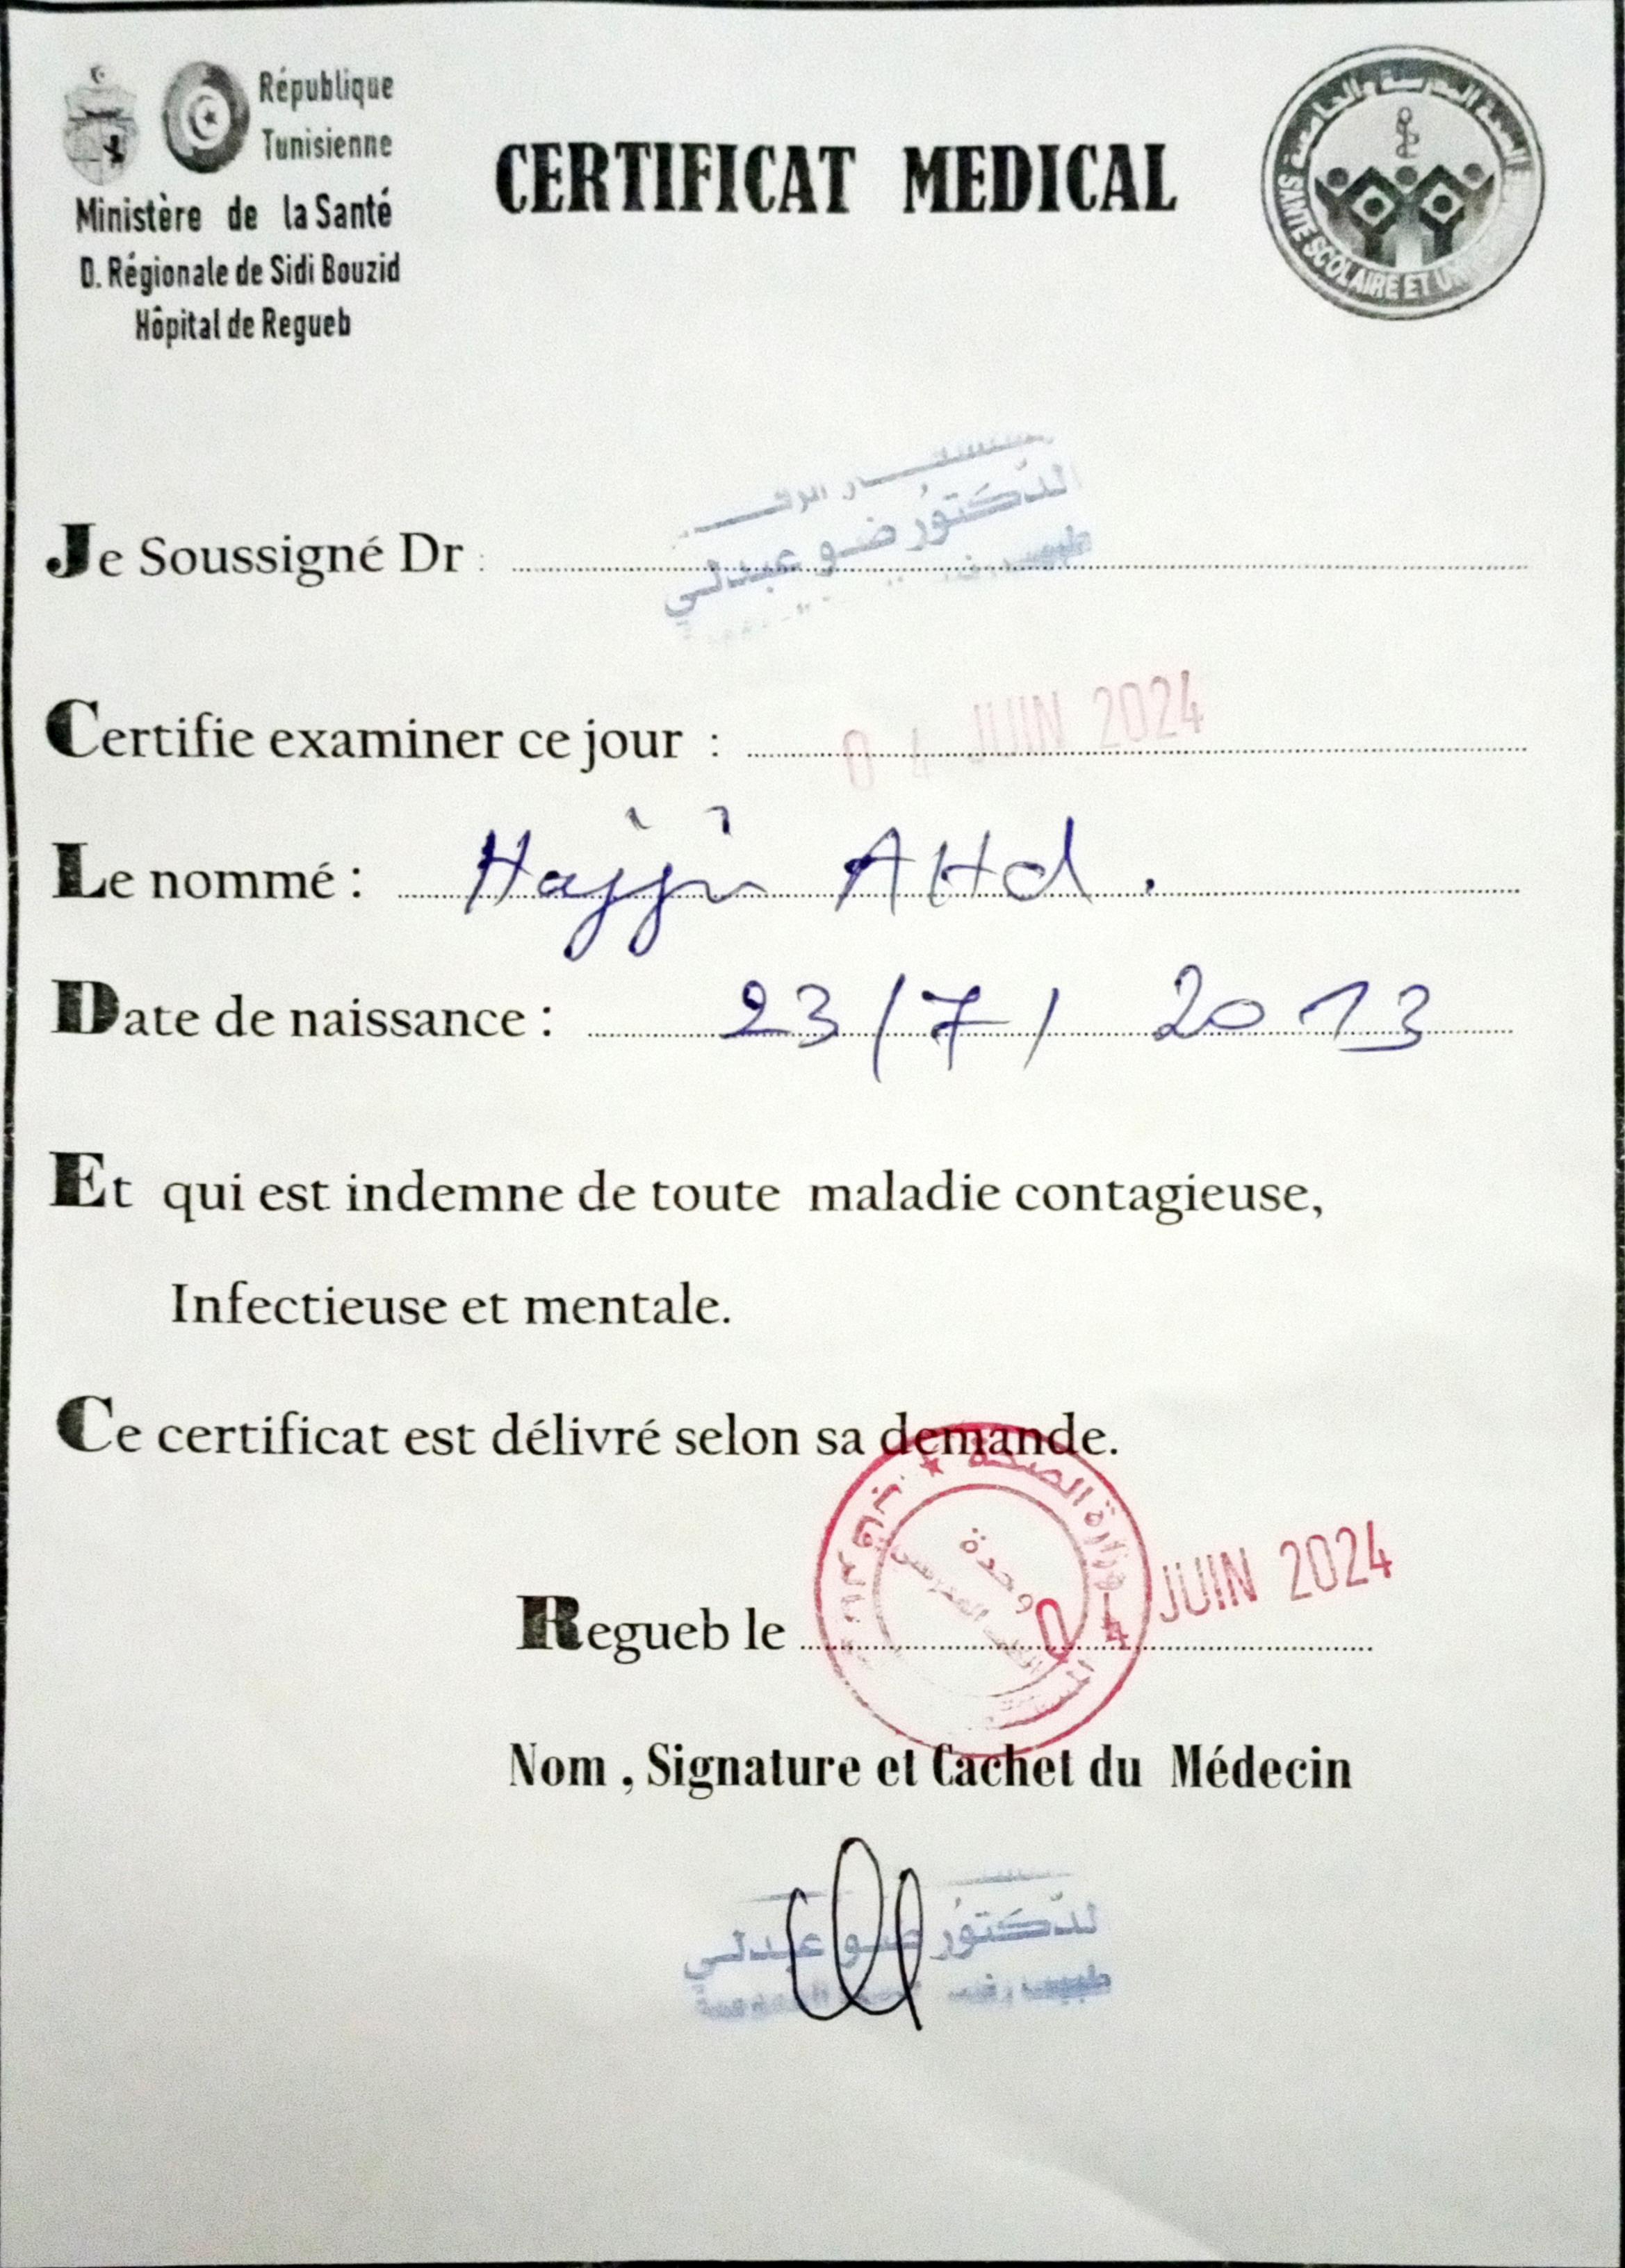 République
Tunisienne
Ministère de la Santé
D. Régionale de Sidi Bouzid
Hôpital de Regueb
CERTIFICAT MEDICAL
SANTE SCOLAIRE ET
Je Soussigné Dr :
الدّكتور ضو عبدلي
Certifie examiner ce jour : 04 JUIN 2024
Le nommé : Hajji AHd.
Date de naissance : 23/7/2013
Et qui est indemne de toute maladie contagieuse,
Infectieuse et mentale.
Ce certificat est délivré selon sa demande.
وزارة الصحة
وحدة
Regueb le 04 JUIN 2024
Nom , Signature et Cachet du Médecin
الدّكتور ضو عبدلي
طبيب